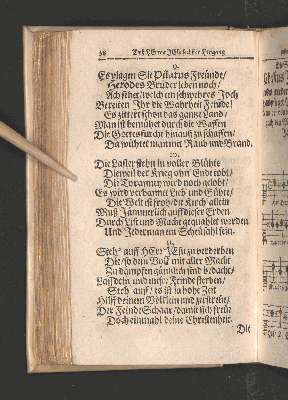 98 Deß HErrn JEsu sanffter Hingang
9.
Es plagen Sie Pilatus Freunde/
Herodes Brüder leben noch/
Ach sihet/welch ein schwehres Joch
Bereiten Ihr die Wahrheit Feinde!
Es zittert schon das gantz Land/
Man ist bemühet durch die Waffen
Die Gottesfurcht hinauß zu schaffen/
Da wühtet man mit Raub und Brand.
10.
Die Laster stehn in voller Blühte
Dieweil der Krieg ohn Ende tobt/
Die Tyranney wird noch gelobt/
Es wird verbannet Lieb und Gühte/
Die Welt ist froh/ die Kirch allein
Muß Jämmerlich auff dieser Erden
Durch List und Macht gequählet werden
Und Jederman ein Scheusahl sein.
11.
Steh' auff HErr JEsu/ zu verderben
Die/ so dein Volk mit aller Macht
Zu dämpffen gäntzlich sind bedacht/
Laß dein und unser Feinde sterben/
Steh' auff/ es ist ja hohe Zeit
Hilff deinem Völklein und zerstreue/
Der Feinde Schaar/ damit sich freue
Doch einmahl deine Christenheit.
Die